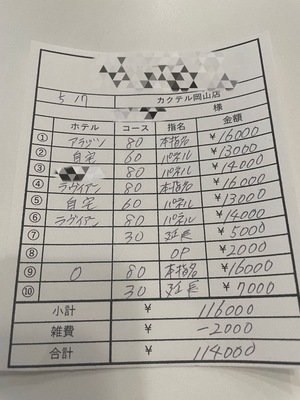 5/17 カクテル岡山店
様
ホテル コース 指名 金額
① 80 本指名 ¥16000
② 自宅 60 パネル ¥13000
③ 80 パネル ¥14000
④ ラヴィアン 80 本指名 ¥16000
⑤ 自宅 60 パネル ¥13000
⑥ ラヴィアン 80 パネル ¥14000
⑦ 30 延長 ¥5000
⑧ OP ¥2000
⑨ 〇 80 本指名 ¥16000
⑩ 30 延長 ¥7000
小計 ¥ 116000
雑費 ¥ -2000
合計 ¥ 114000